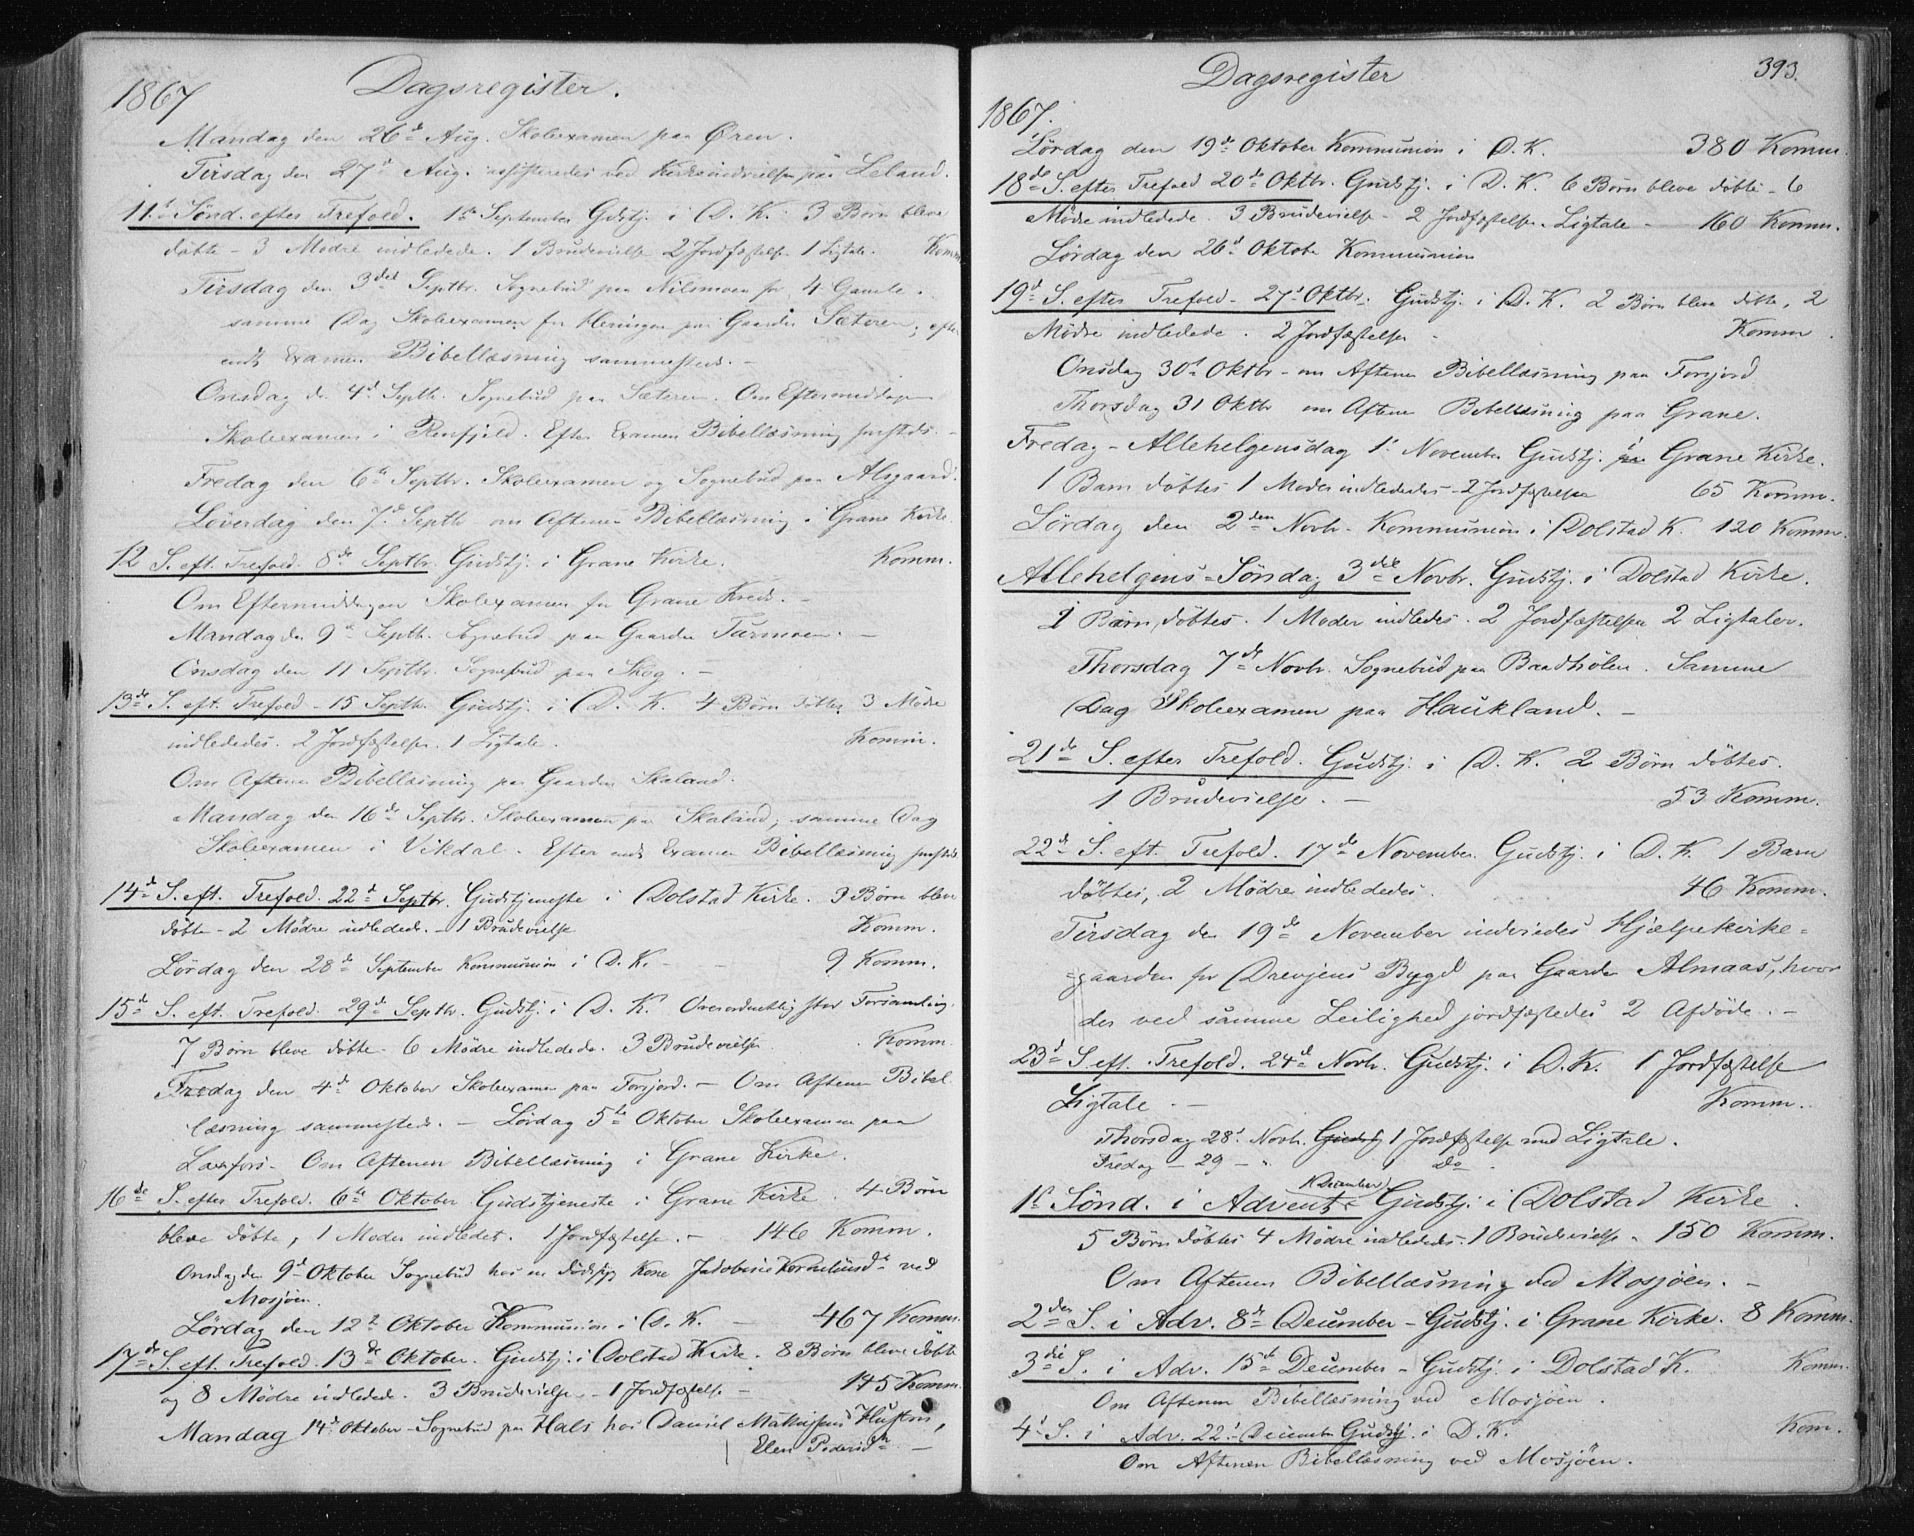 1867 Dagsregister.
Mandag den 26d Aug. Skoleexamen paa Øren.
Tirsdag den 27d Aug. assisteredes ved Kirkeindvielsen paa Leland.
11te Sønd. efter Trefold. 1ste September Gdstj. i D. K. 3 Børn bleve
døbte - 3 Mødre indledede. 1 Brudevielse 2 Jordfæstelser 1 Ligtale. Komm
Tirsdag den 3die Septbr. Sognebud paa Nilsmoen for 4 Gamle.
samme Dag Skoleexamen for Heringen paa Gaarden Sæteren; efter
endt Examen Bibellæsning sammesteds. -
Onsdag d. 4d Septbr. Sognebud paa Sæteren. Om Eftermiddagen
Skoleexamen i Renfjeld. Efter Examen Bibellæsning smsteds. -
Fredag den 6te Septbr. Skoleexamen og Sognebud paa Alsgaard.
Løverdag den 7d Septbr om Aftenen Bibellæsning i Grane Kirke
12 S. eft. Trefold. 8de Septbr. Gudstj. i Grane Kirke. Komm.
Om Eftermiddagen Skoleexamen for Grane Kreds. -
Mandag den 9d Septbr. Sognebud paa Gaarden Turmoen. -
Onsdag den 11 Septbr. Sognebud paa Skog. -
13de S. eft. Trefold - 15 Septbr. Gudstj. i D. K. 4 Børn døbtes 3 Mødre
indlededes. 2 Jordfæstelser. 1 Ligtale. Komm.
Om Aftenen Bibellæsning paa Gaarden Skaland.
Mandag den 16de Septbr. Skoleexamen paa Skaland; samme Dag
Skoleexamen i Vikdal. Efter endt Examen Bibellæsning smsteds
14d S. eft. Trefold. 22d Septbr. Gudstjeneste i Dolstad Kirke. 3 Børn bleve
døbte - 2 Mødre indledede. - 1 Brudevielse Komm.
Lørdag den 28de September Kommunion i D. K. - - 9 Komm.
15d S. eft. Trefold. 29d Septbr. Gudstj. i D. K. Overordentlig stor Forsamling.
7 Børn bleve døbte - 6 Mødre indledede. 3 Brudevielser. Komm.
Fredag den 4de Oktober Skoleexamen paa Forsjord. - Om Aftenen Bibel
læsning sammesteds. - Lørdag 5te Oktober Skoleexamen paa
Laxfors. Om Aftenen Bibellæsning i Grane Kirke.
16de S. efter Trefold. 6te Oktober Gudstjeneste i Grane Kirke 4 Børn
bleve døbte, 1 Moder indledet. 1 Jordfæstelse. - 146 Komm.
Onsdag den 9d Oktober Sognebud hos en dødssyg Kone Jakobine Korneliusdr ved
Mosjøen.
Lørdag den 12te Oktober Kommunion i D. K. - 467 Komm.
17de S. eft. Trefold. 13de Oktober. Gudstj. i Dolstad Kirke. 8 Børn bleve døbte
og 8 Mødre indledede. 3 Brudevielser - 1 Jordfæstelse - 145 Komm.
Mandag 14d Oktober - Sognebud paa Hals hos Daniel Mathissens Hustru,
Elen Pedersdtr. -
Dagsregister 393.
1867.
Lørdag den 19de Oktober Kommunion i D. K. 380 Komm.
18de S. efter Trefold 20de Oktbr. Gudstj. i D. K. 6 Børn bleve døbte - 6
Mødre indledede. 3 Brudevielser - 2 Jordfæstelser. Ligtale - 160 Komm.
Lørdag den 26d Oktober Kommunion
19d S. efter Trefold - 27d Oktbr. Gudstj. i D. K. 2 Børn bleve døbte, 2
Mødre indledede. 2 Jordfæstelser - Komm.
Onsdag 30d Oktbr - om Aftenen Bibellæsning paa Forsjord
Thorsdag 31 Oktbr om Aftenen Bibellæsning paa Grane.
Fredag - Allehelgensdag 1. November Gudstj. i Grane Kirke.
1 Barn døbtes 1 Moder indlededes - 2 Jordfæstelser 65 Komm.
Lørdag den 2den Novbr. Kommunion i Dolstad K. 120 Komm.
Allehelgens-Søndag 3die Novbr. Gudstj. i Dolstad Kirke.
1 Barn døbtes. 1 Moder indledes. 2 Jordfæstelser 2 Ligtaler.
Thorsdag 7de Novbr. Sognebud paa Baadhølen. Samme
Dag Skoleexamen paa Haukland. -
21de S. efter Trefold. Gudstj. i D. K. 2 Børn døbtes.
1 Brudevielse. - 53 Komm.
22de S. eft. Trefold. 17de November. Gudstj. i D. K. 1 Barn
døbtes, 2 Mødre indlededes. 46 Komm.
Tirsdag den 19de November indviedes Hjælpekirke-
gaarden for Drevjens Bygd paa Gaarden Almaas, hvor
der ved samme Leilighed jordfæstedes 2 Afdøde. -
23d S. eft. Trefold. 24de Novbr. Gudstj. i D. K. 1 Jordfæstelse
Ligtale. - Komm.
Thorsdag 28d Novbr. Gudstj 1 Jordfæstelse med Ligtale.
Fredag - 29 - " 1 do
1ste Sønd. i Advent. 1 December Gudstj. i Dolstad Kirke.
5 Børn døbtes 4 Mødre indlededes. 1 Brudevielse - 150 Komm.
Om Aftenen Bibellæsning ved Mosjøen. -
2den S. i Adv. 8de December - Gudstj. i Grane Kirke. 8 Komm.
3die S. i Adv. 15de December - Gudstj. i Dolstad K. Komm.
Om Aftenen Bibellæsning ved Mosjøen.
4d S. i Adv. 22d December Gudstj. i D. K. Kom.
Om Aftenen Bibellæsning ved Mosjøen.